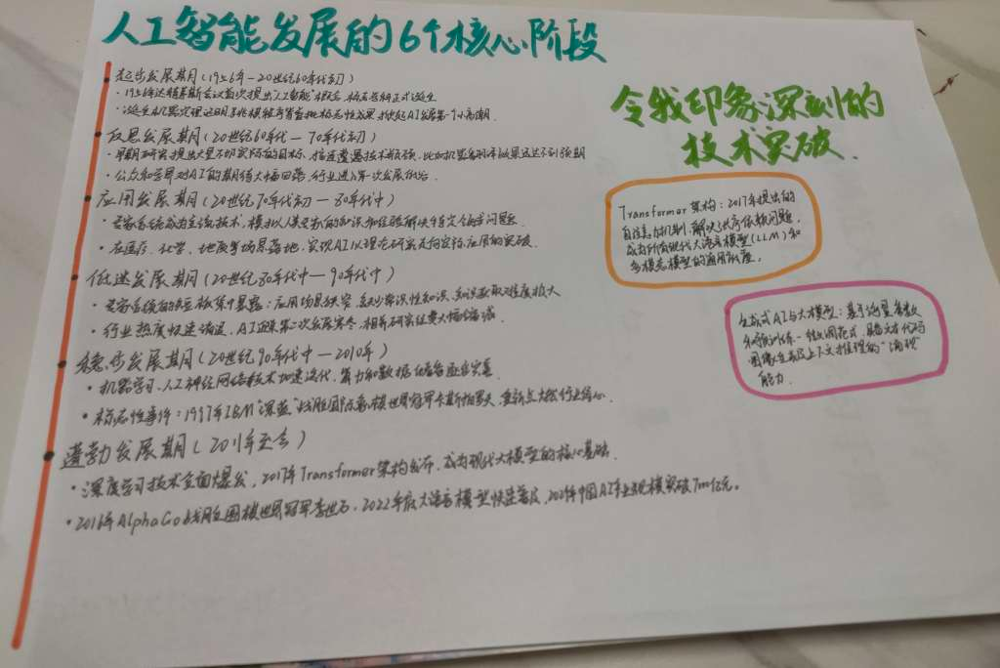 人工智能发展的6个核心阶段
起步发展期(1956年-20世纪60年代初)
·1956年达特茅斯会议首次提出"人工智能"概念,标志学科正式诞生
·诞生机器定理证明、跳棋程序等首批标志性成果,掀起AI发展第一个小高潮
反思发展期(20世纪60年代-70年代初)
·早期研究提出大量不切实际的目标,接连遭遇技术瓶颈,比如机器翻译效果远达不到预期
·公众和学界对AI的期待大幅回落,行业进入第一次发展低谷
应用发展期(20世纪70年代初-80年代中)
·专家系统成为主流技术,模拟人类专家的知识和经验解决特定领域问题
·在医疗、化学、地质等场景落地,实现AI从理论研究走向实际应用的突破
低迷发展期(20世纪80年代中-90年代中)
·专家系统的短板集中暴露:应用场景狭窄,缺少常识性知识,知识获取难度极大
·行业热度快速消退,AI迎来第二次发展寒冬,相关研究经费大幅缩减
稳步发展期(20世纪90年代中-2010年)
·机器学习、人工神经网络技术加速迭代,算力和数据储备逐步完善
·标志性事件:1997年IBM"深蓝"战胜国际象棋世界冠军卡斯帕罗夫,重新点燃行业信心
蓬勃发展期(2011年至今)
·深度学习技术全面爆发,2017年Transformer架构发布,成为现代大模型的核心基础
·2016年AlphaGo战胜围棋世界冠军李世石,2022年底大语言模型快速普及,中国AI产业规模突破7000亿元。
令我印象深刻的
技术突破.
Transformer架构:2017年提出的
自注意力机制,解决了长序依赖问题,
成为所有现代大语言模型(LLM)和
多模态模型的通用底座。
生成式AI与大模型:基于海量参数
和预训练-微调范式,具备文本代码
图像生成及上下文推理的"涌现"
能力.